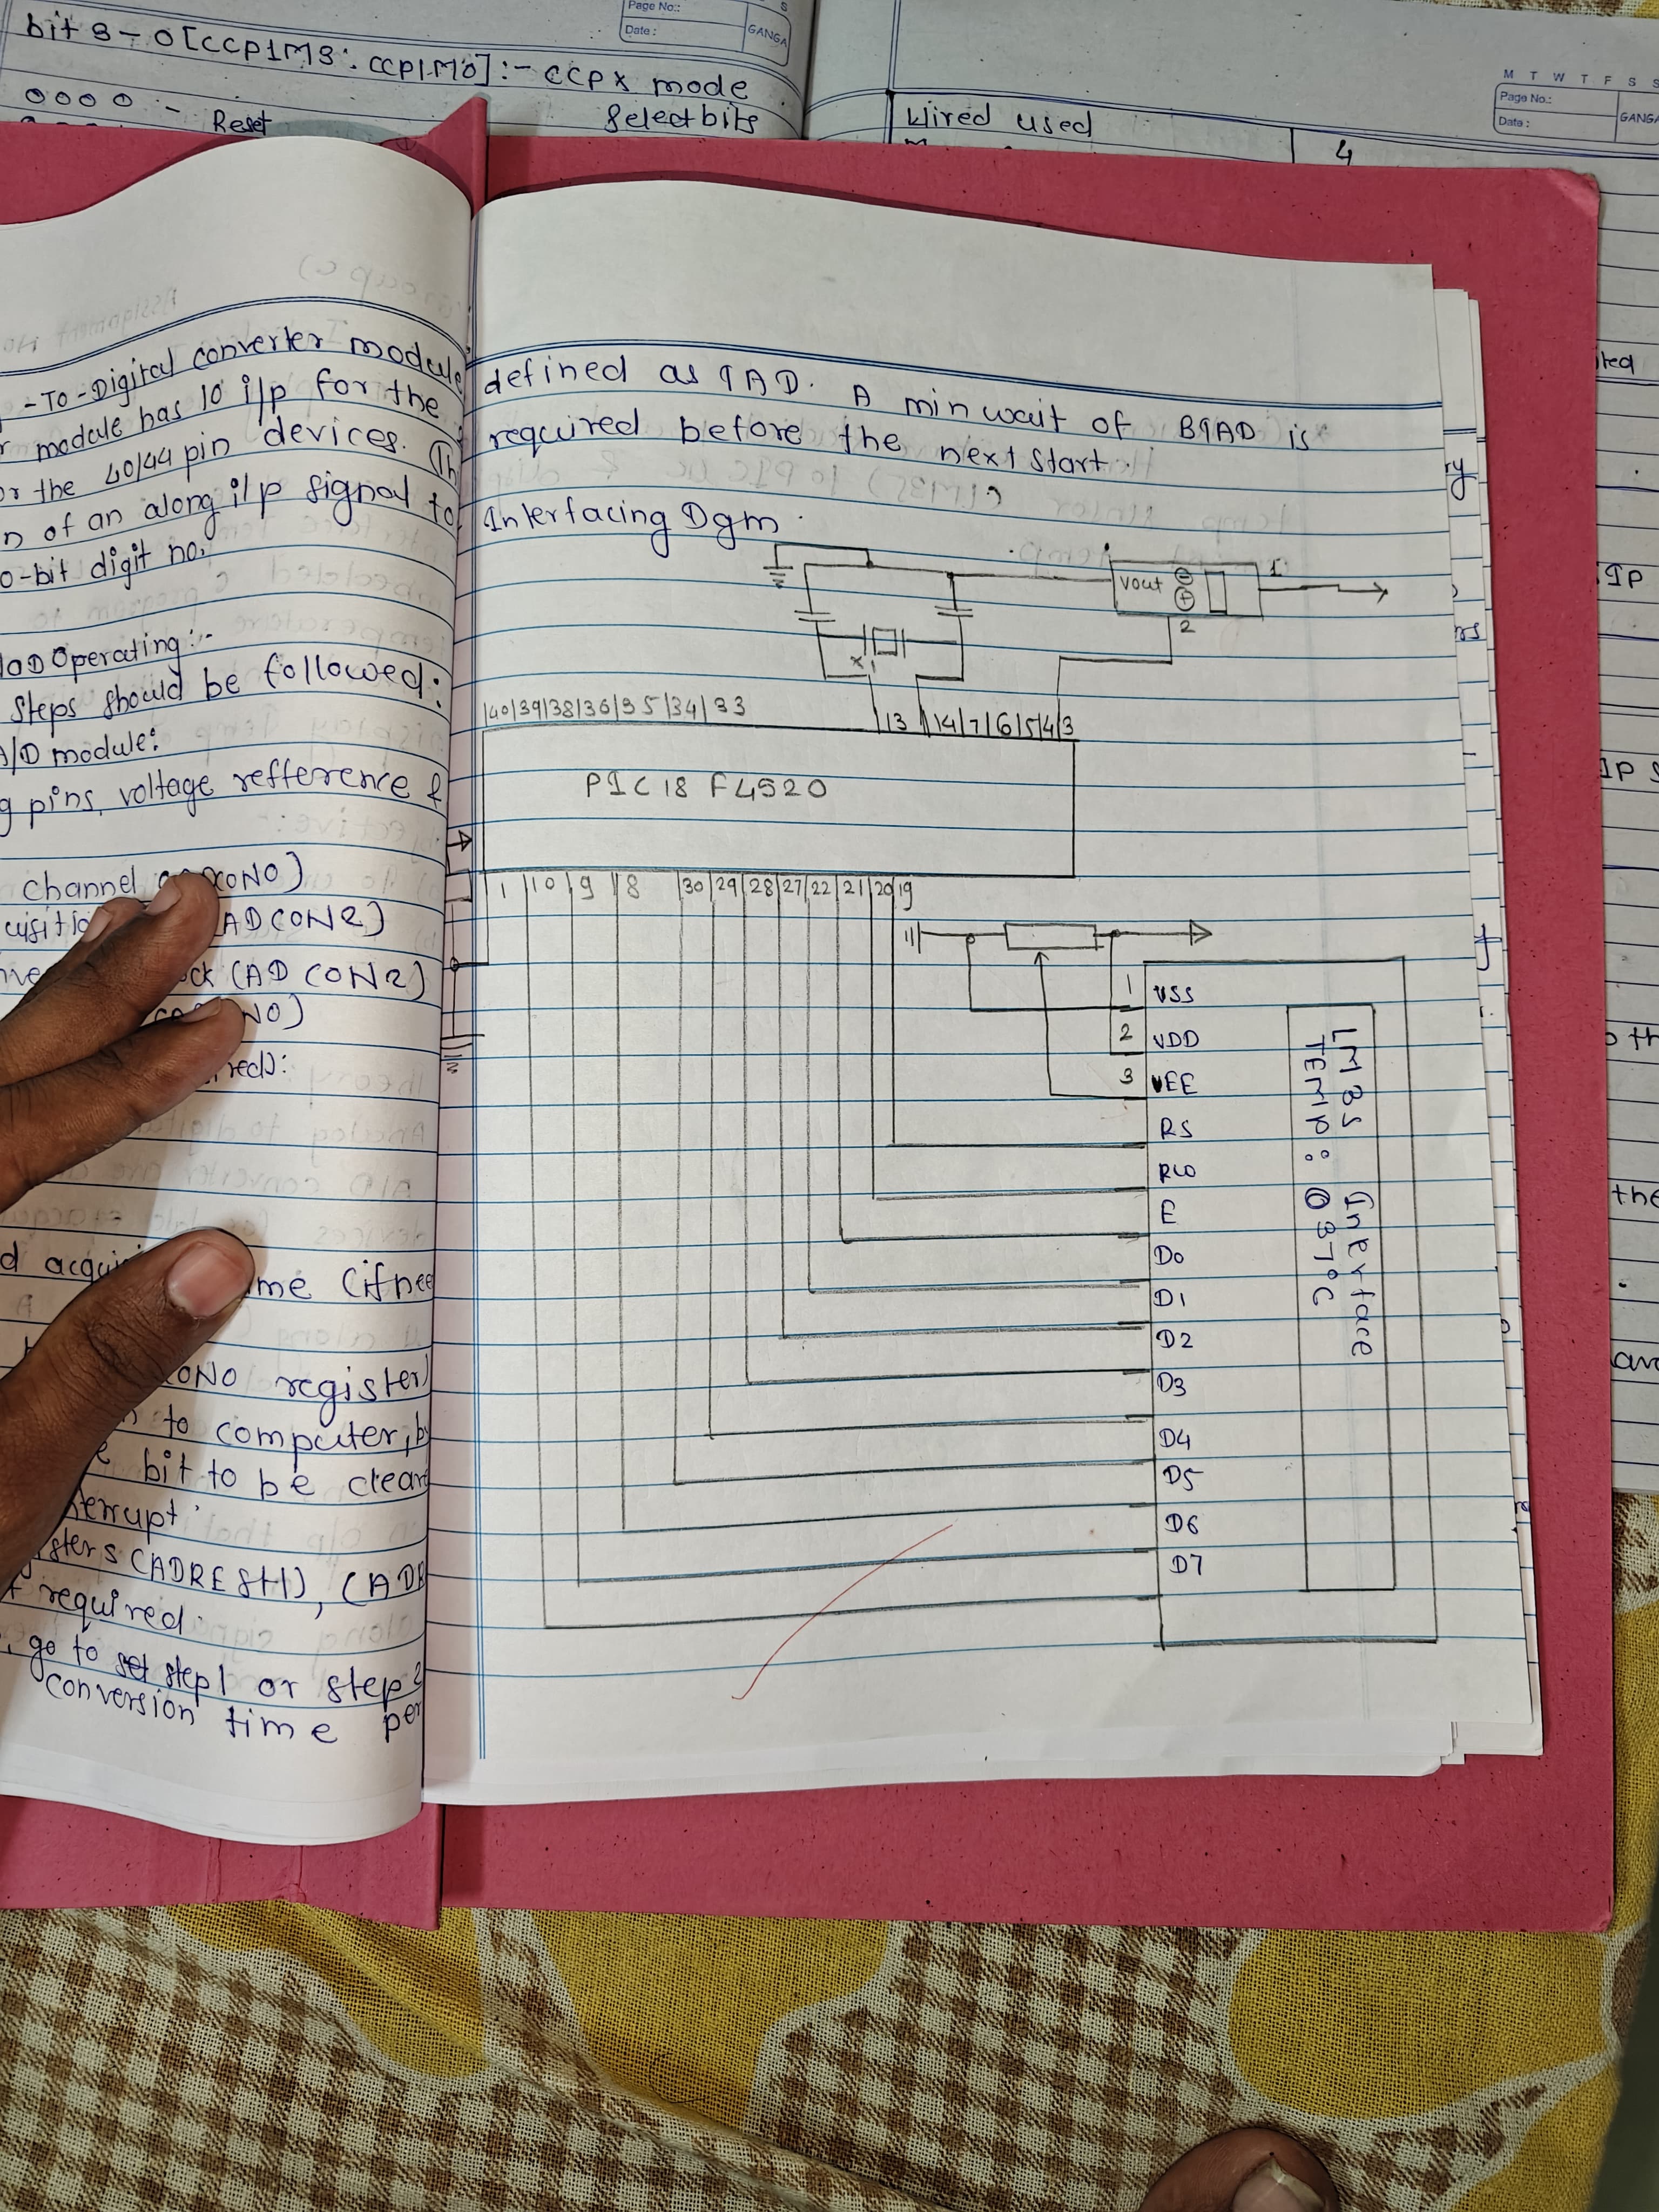 Page No.:
Date :
GANGA
S
bit 3 - 0 [CCP1M3 : CCP1M0] :- CCPX mode
Select bits
0000 - Reset
M T W T F S S
Page No.:
Date :
GANGA
Wired used
4
- To - Digital converter module
module has 10 i/p for the
or the 40/44 pin devices. Th
n of an along i/p signal to
0-bit digit no.
Operating :-
Steps should be followed :
A/D module :
g pins, voltage refference &
channel
(ADCON2)
ck (ADCON2)
NO)
red) :
d acqui me (if nee
ONO register)
n to computer, by
e bit to be clear
terrupt.
sters (ADRESH), (ADR
f required.
, go to set step 1 or step 2
conversion time per
defined as TAD. A min wait of BTAD is
required before the next start.
Interfacing Dgm.
Vout
1
2
X1
40 39 38 36 35 34 33
13 14 7 6 5 4 3
PIC18F4520
1 10 9 8 30 29 28 27 22 21 20 19
1 VSS
2 VDD
3 VEE
RS
RW
E
D0
D1
D2
D3
D4
D5
D6
D7
LM35 Interface
TEMP : 037°C
ry
IP
rs
IP
the